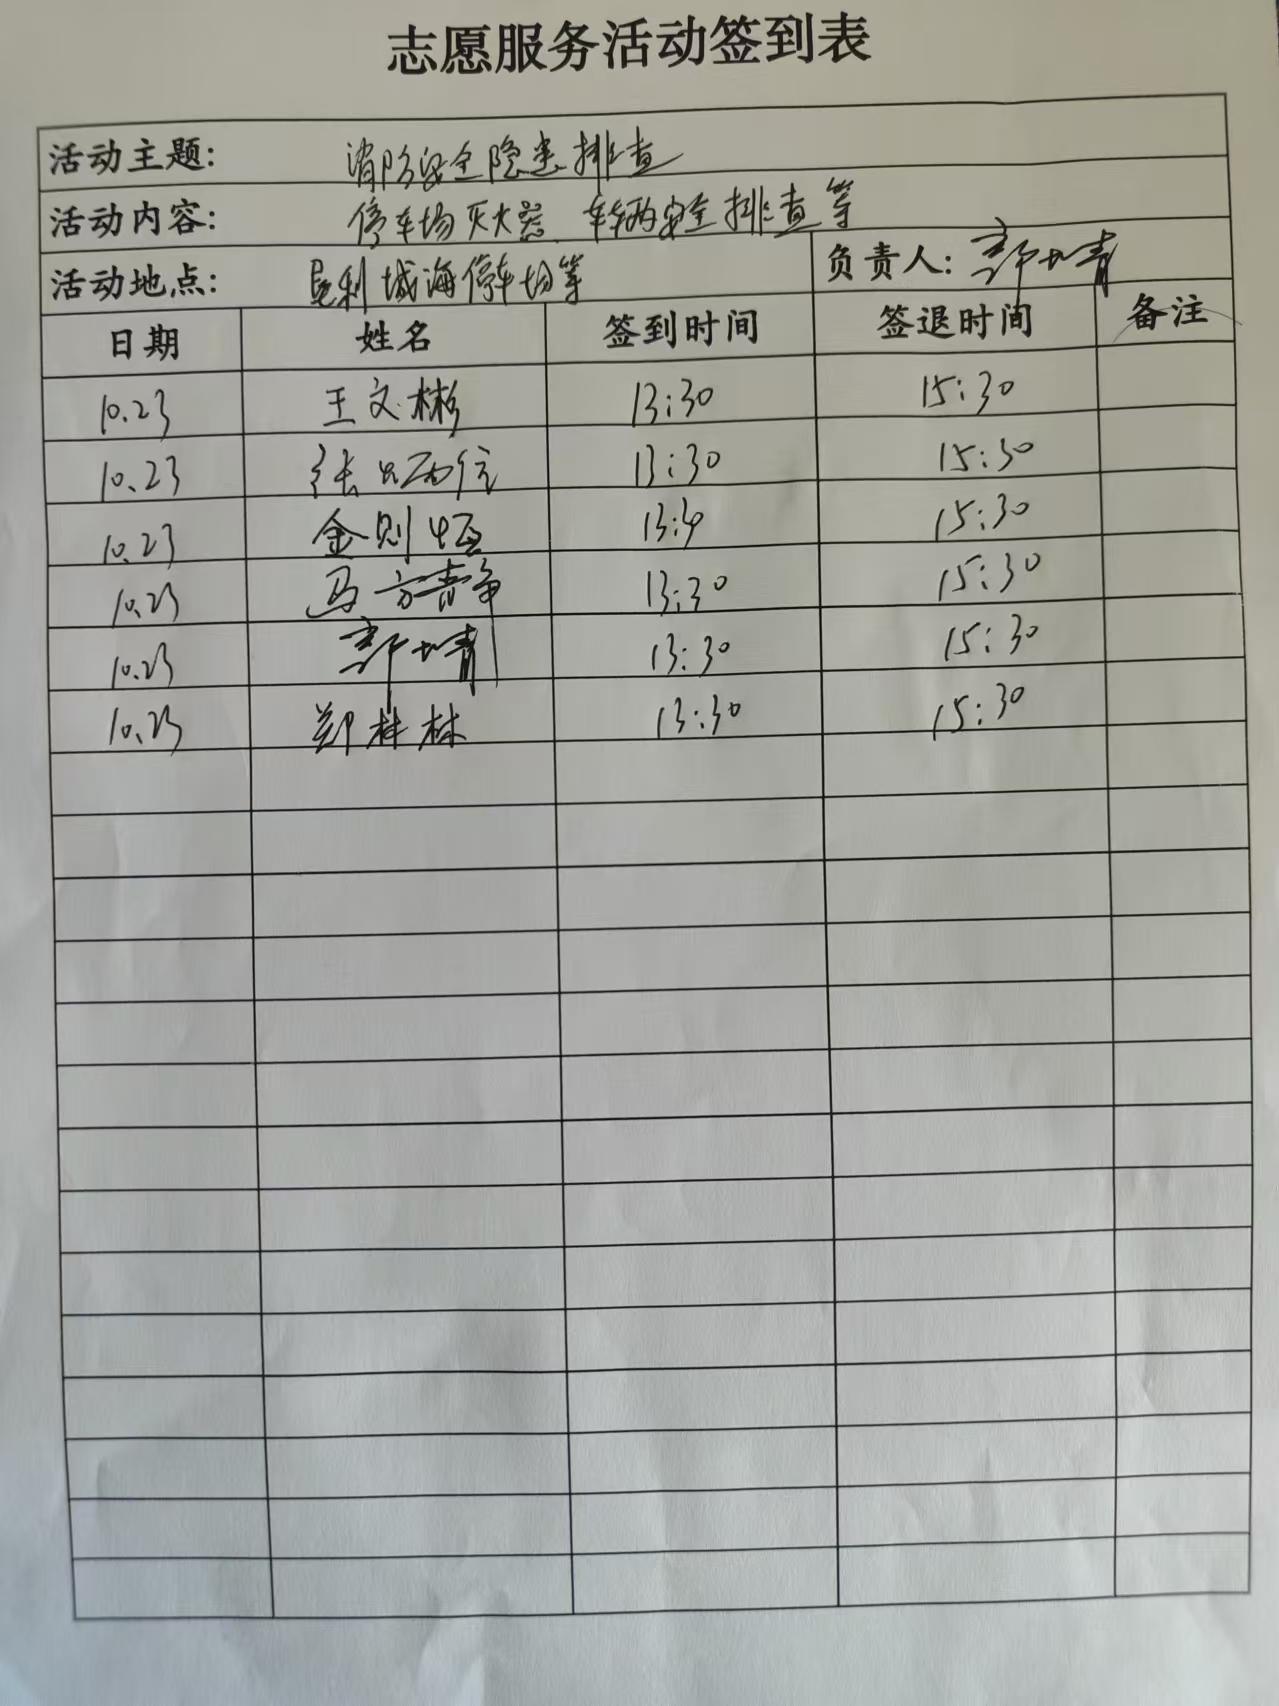 志愿服务活动签到表
活动主题: 消防安全隐患排查
活动内容: 停车场灭火器、车辆安全排查等
活动地点: 垦利城海停车场等 负责人:
日期 姓名 签到时间 签退时间 备注
10.23 王文彬 13:30 15:30
10.23 张 13:30 15:30
10.23 金则恒 15:30
10.23 马方静 13:30 15:30
10.23 13:30 15:30
10.23 郑林林 13:30 15:30